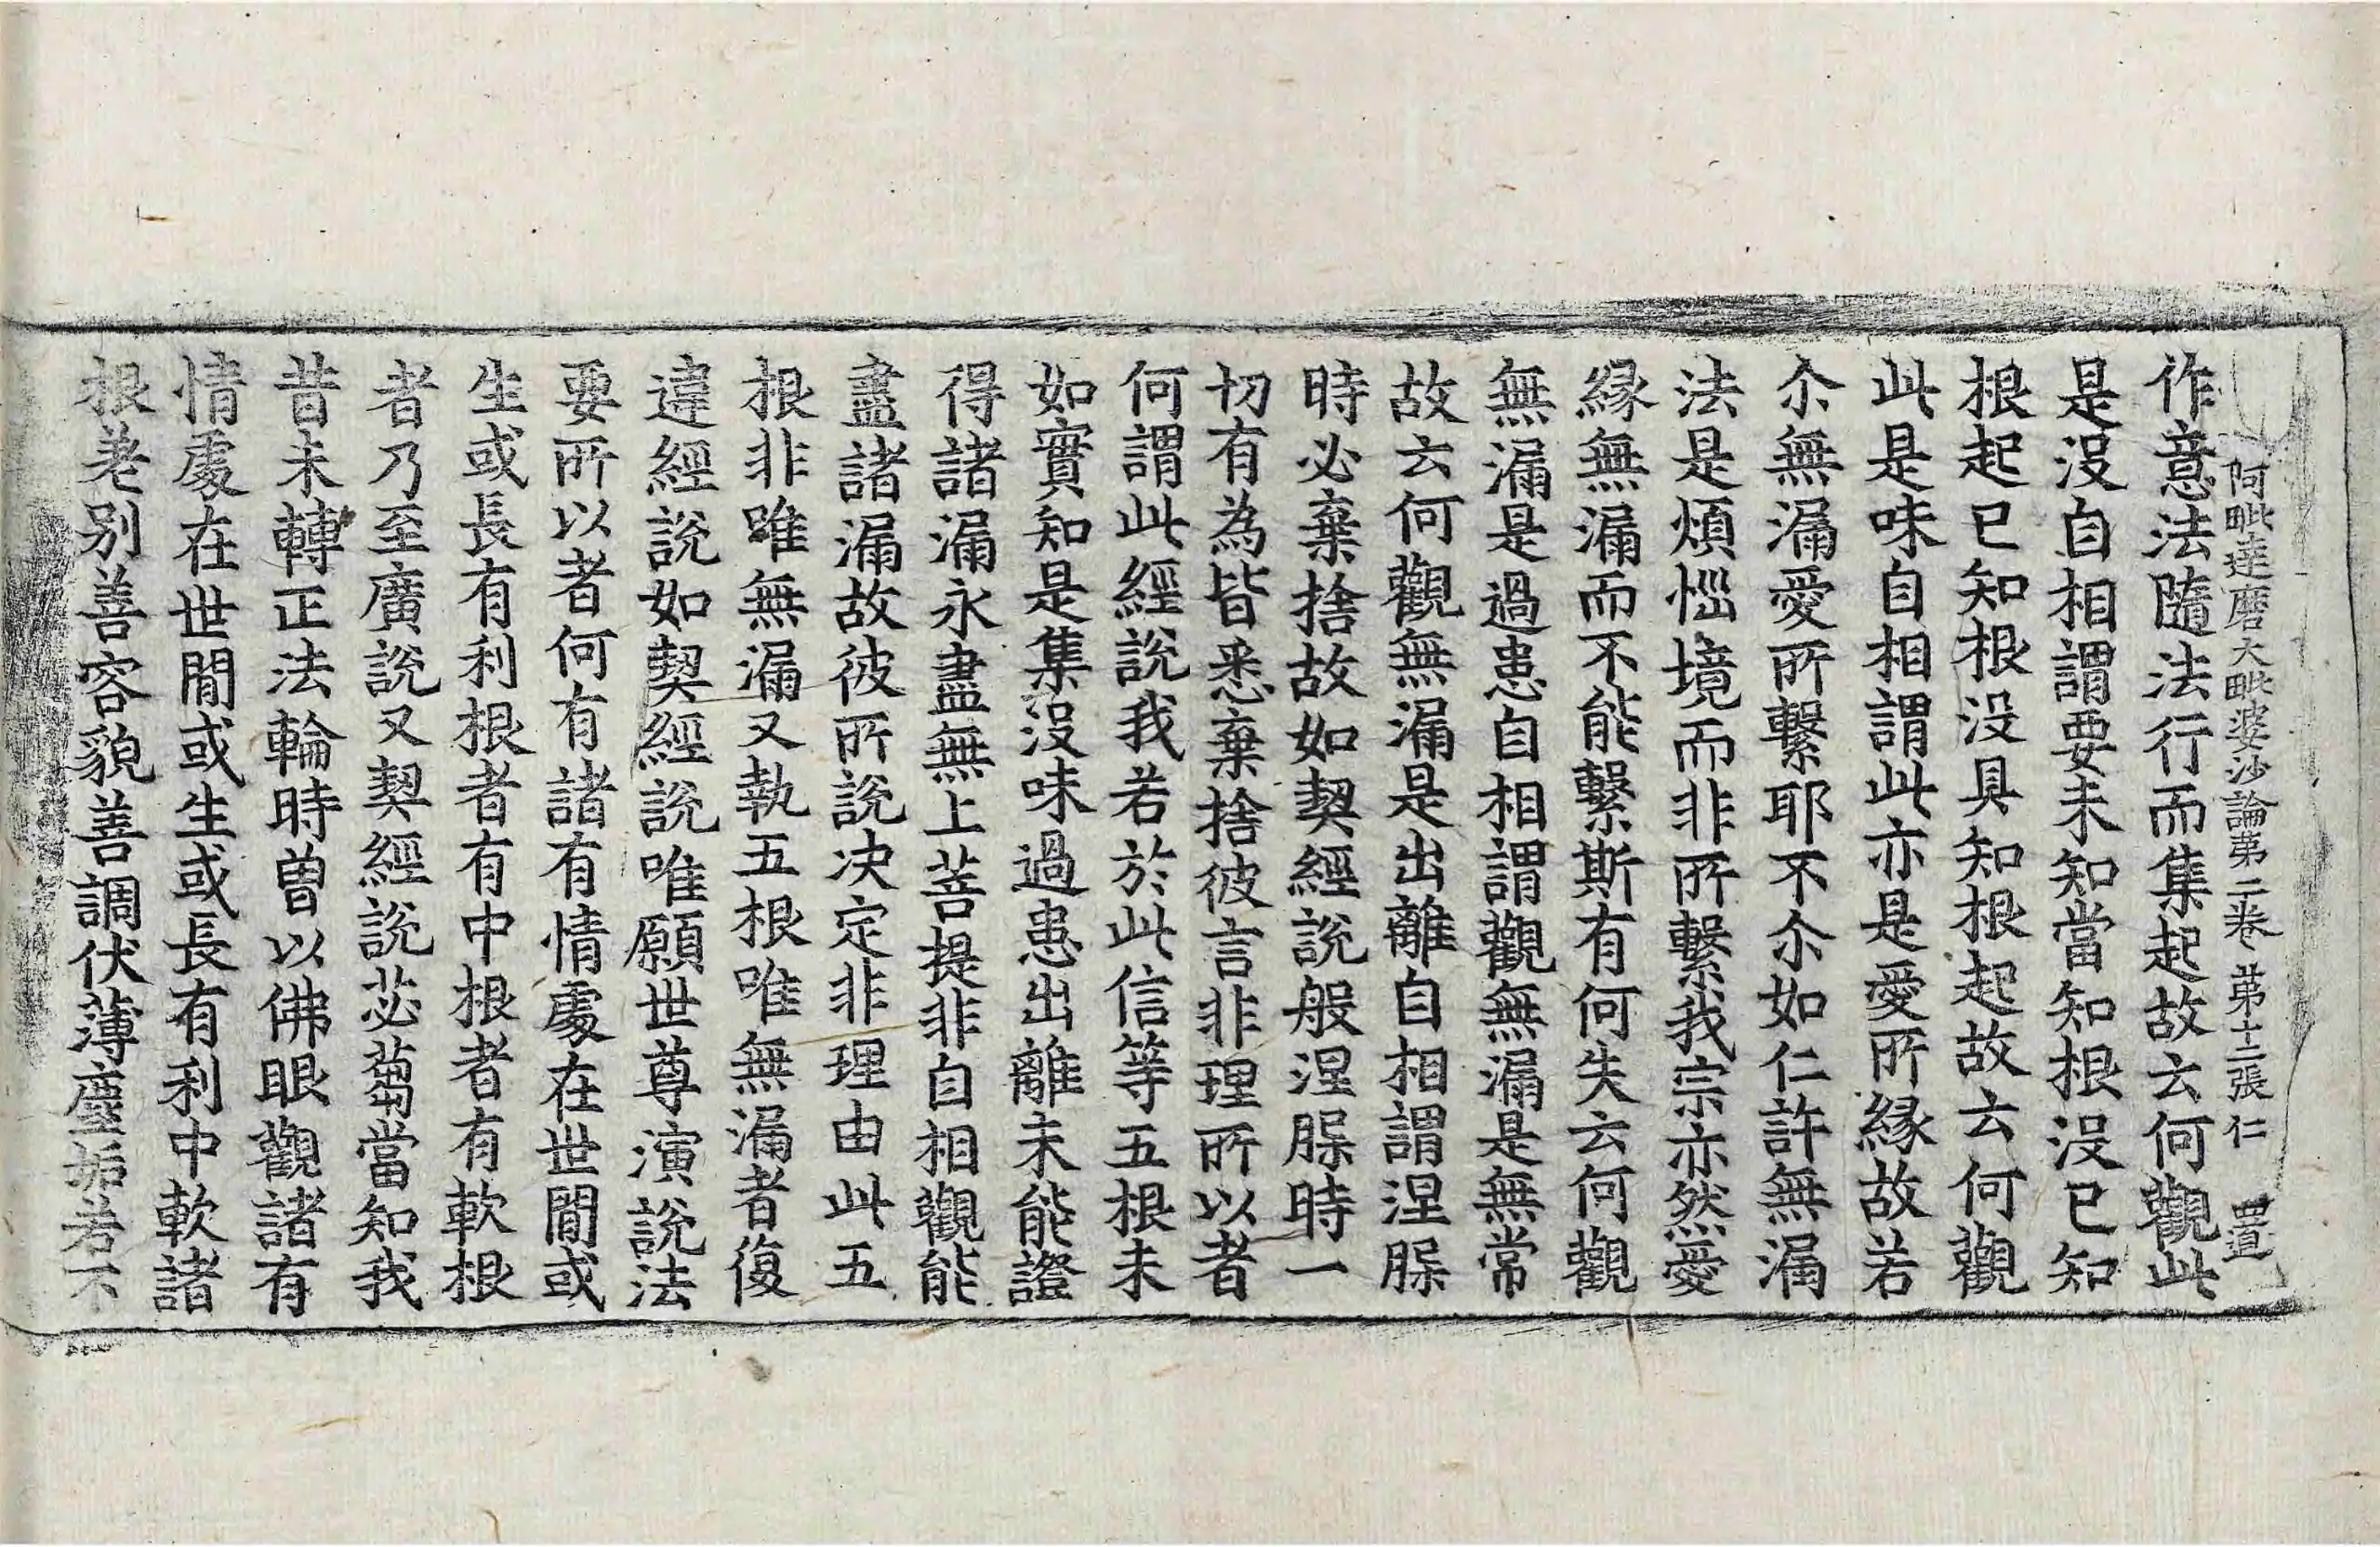 阿毗達磨大毗婆沙論第二卷 第十二張 仁
作意法隨法行而集起故云何觀此
是沒自相謂要未知當知根沒已知
根起已知根沒具知根起故云何觀
此是味自相謂此亦是愛所緣故若
尒無漏愛所繫耶不尒如仁許無漏
法是煩惱境而非所繫我宗亦然愛
緣無漏而不能繫斯有何失云何觀
無漏是過患自相謂觀無漏是無常
故云何觀無漏是出離自相謂涅槃
時必棄捨故如契經說般涅槃時一
切有為皆悉棄捨彼言非理所以者
何謂此經說我若於此信等五根未
如實知是集沒味過患出離未能證
得諸漏永盡無上菩提非自相觀能
盡諸漏故彼所說決定非理由此五
根非唯無漏又執五根唯無漏者復
違經說如契經說唯願世尊演說法
要所以者何有諸有情處在世閒或
生或長有利根者有中根者有軟根
者乃至廣說又契經說苾蒭當知我
昔未轉正法輪時曾以佛眼觀諸有
情處在世閒或生或長有利中軟諸
根差別善容貌善調伏薄塵垢若不